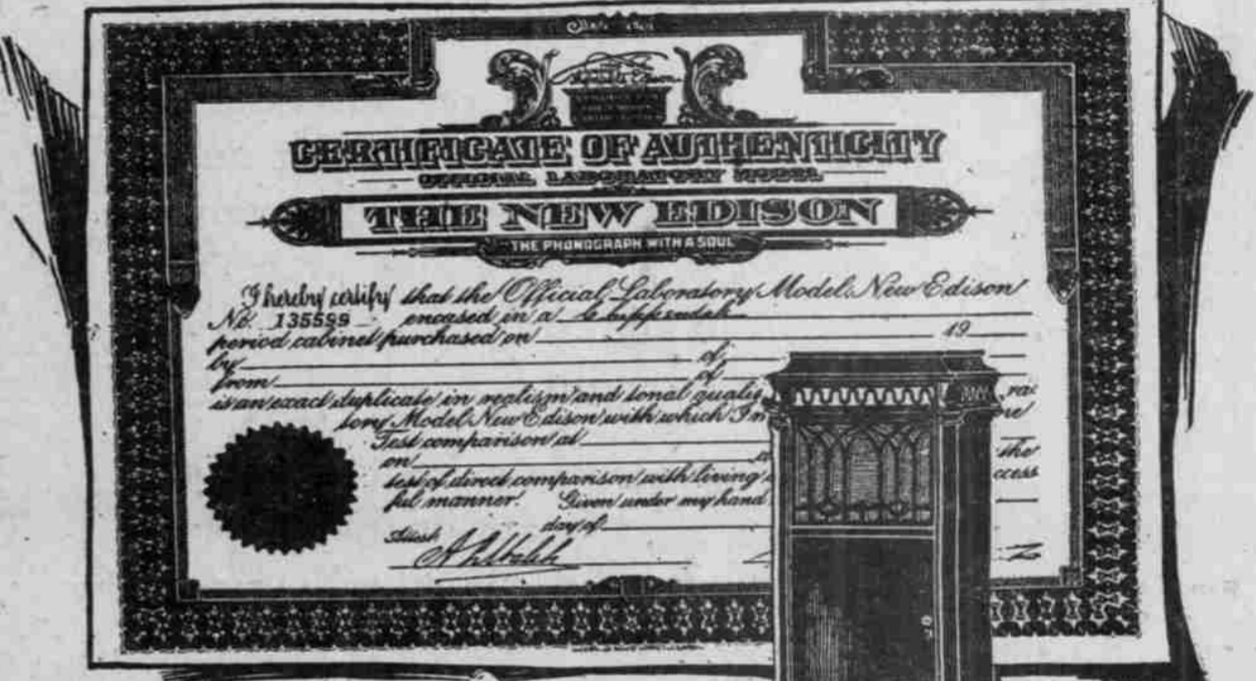 CERTIFICATE OF AUTHENTICITY
OFFICIAL LABORATORY MODEL
THE NEW EDISON
THE PHONOGRAPH WITH A SOUL
I hereby certify that the Official Laboratory Model New Edison
No. 135599 encased in a Chippendale
period cabinet purchased on 19
by of
from of
is an exact duplicate in realism and tonal quali
tory Model New Edison with which I m
Test comparison at
on the
test of direct comparison with living ccess
ful manner. Given under my hand
Attest day of